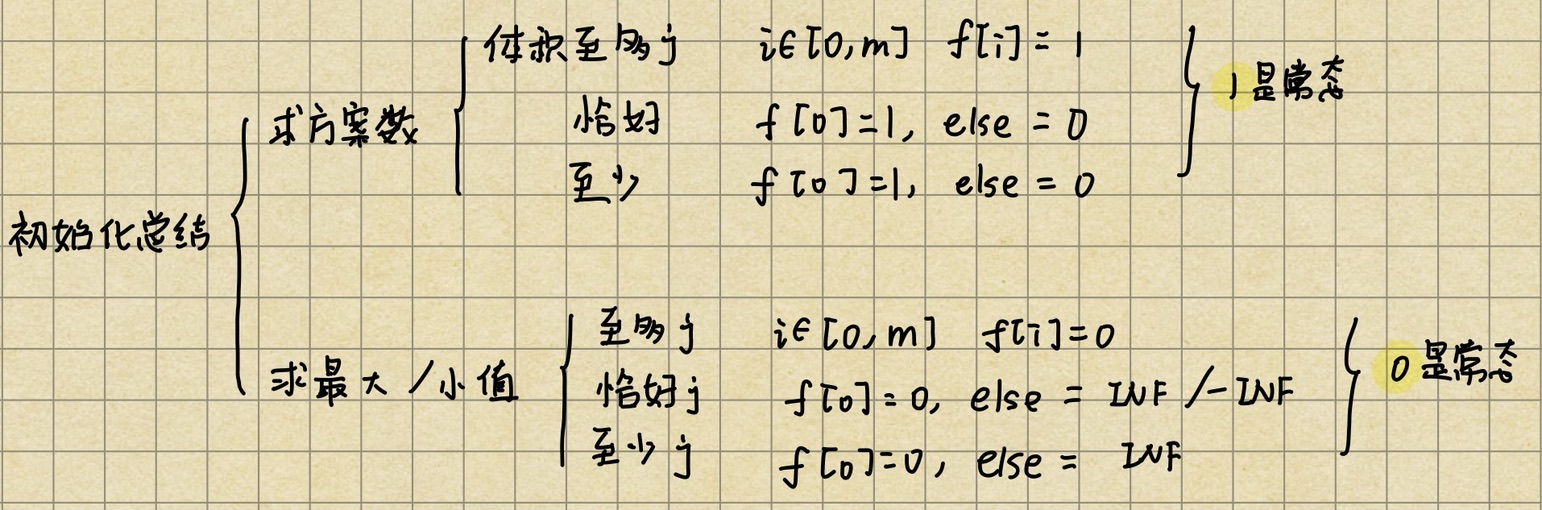 体积至多j i∈[0,m] f[i] = 1
1是常态
求方案数 恰好 f[0]=1, else = 0
至少 f[0]=1, else = 0
初始化总结
至多j i∈[0,m] f[i]=0
0是常态
求最大/小值 恰好j f[0]=0, else = INF/-INF
至少j f[0]=0, else = INF